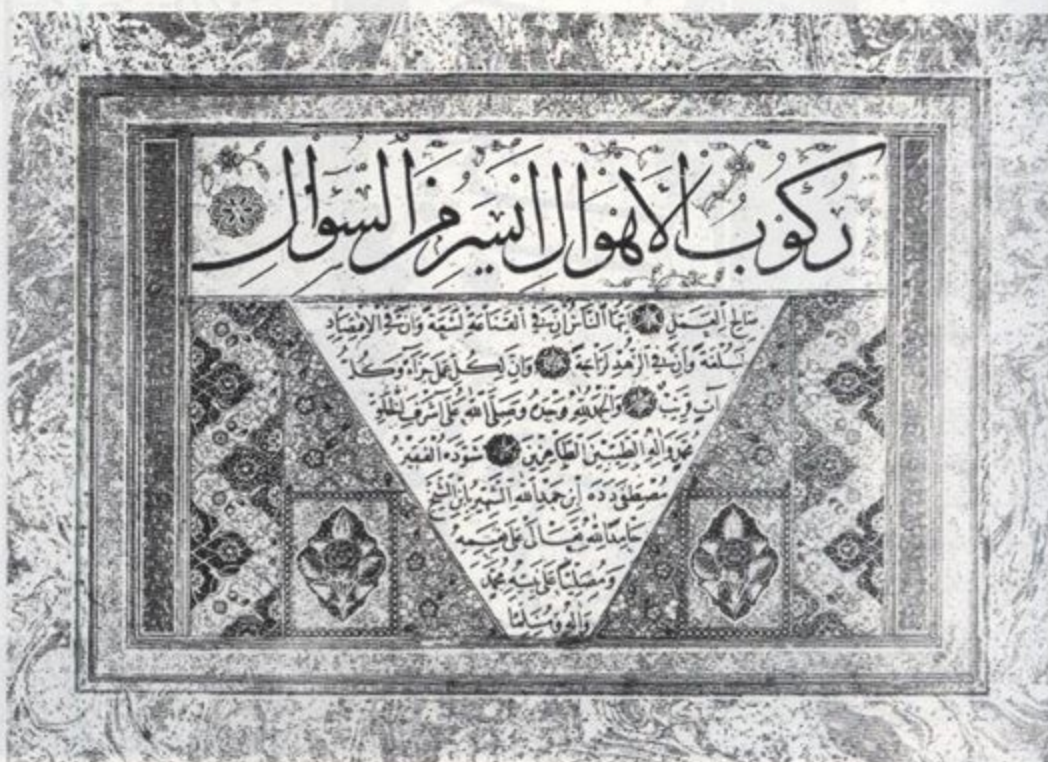 ركوب الاهوال ايسر من السؤال
صالح العمل ايها الناس ان في القناعة لسعة وان في الاقتصاد
لبلغة وان في الزهد لراحة وان لكل عمل جزاء وكل
آت قريب والحمد لله وحده وصلى الله على اشرف الخلق
محمد واله الطيبين الطاهرين سوده الفقير
مصطفى دده ابن حمد الله الشهير بابن الشيخ
حامدا لله تعالى على نعمه
ومصليا على نبيه محمد
واله ومسلما